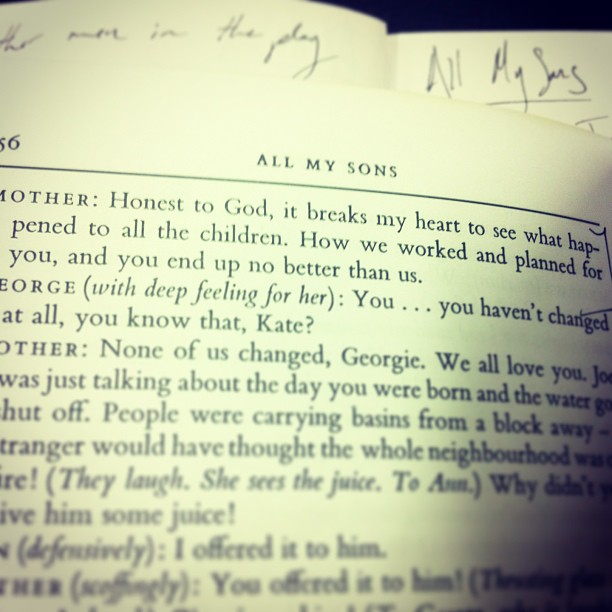 men in the play
All My Sons
56
ALL MY SONS
MOTHER: Honest to God, it breaks my heart to see what hap-
pened to all the children. How we worked and planned for
you, and you end up no better than us.
EORGE (with deep feeling for her): You . . . you haven't changed
at all, you know that, Kate?
OTHER: None of us changed, Georgie. We all love you. Joe
was just talking about the day you were born and the water go
hut off. People were carrying basins from a block away –
tranger would have thought the whole neighbourhood was
ire! (They laugh. She sees the juice. To Ann.) Why didn't
ive him some juice!
N (defensively): I offered it to him.
THER (scoffingly): You offered it to him! (Thrusting